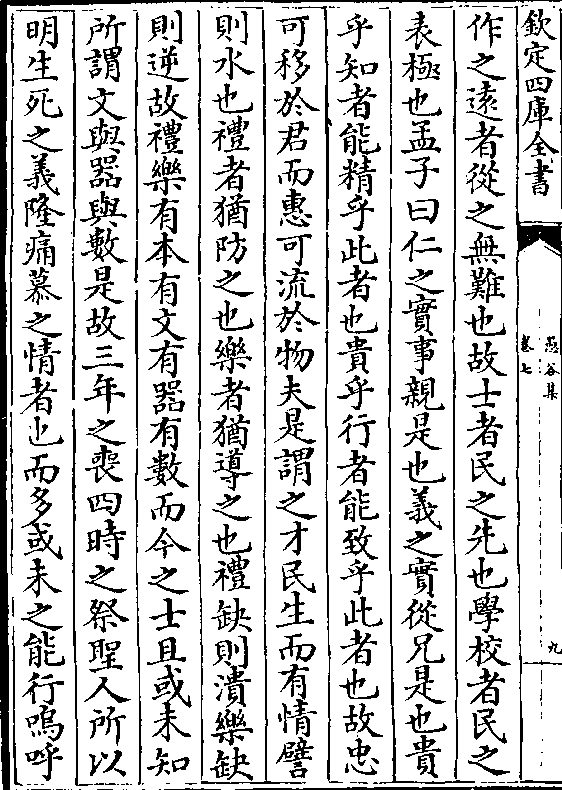 欽定四庫全書
愚谷集
卷七
九
作之遠者從之無難也故士者民之先也學校者民之
表極也孟子曰仁之實事親是也義之實從兄是也貴
乎知者能精乎此者也貴乎行者能致乎此者也故忠
可移於君而惠可流於物夫是謂之才民生而有情譬
則水也禮者猶防之也樂者猶導之也禮缺則潰樂缺
則逆故禮樂有本有文有器有數而今之士且或未知
所謂文與器與數是故三年之喪四時之祭聖人所以
明生死之義隆痛慕之情者也而多或未之能行嗚呼